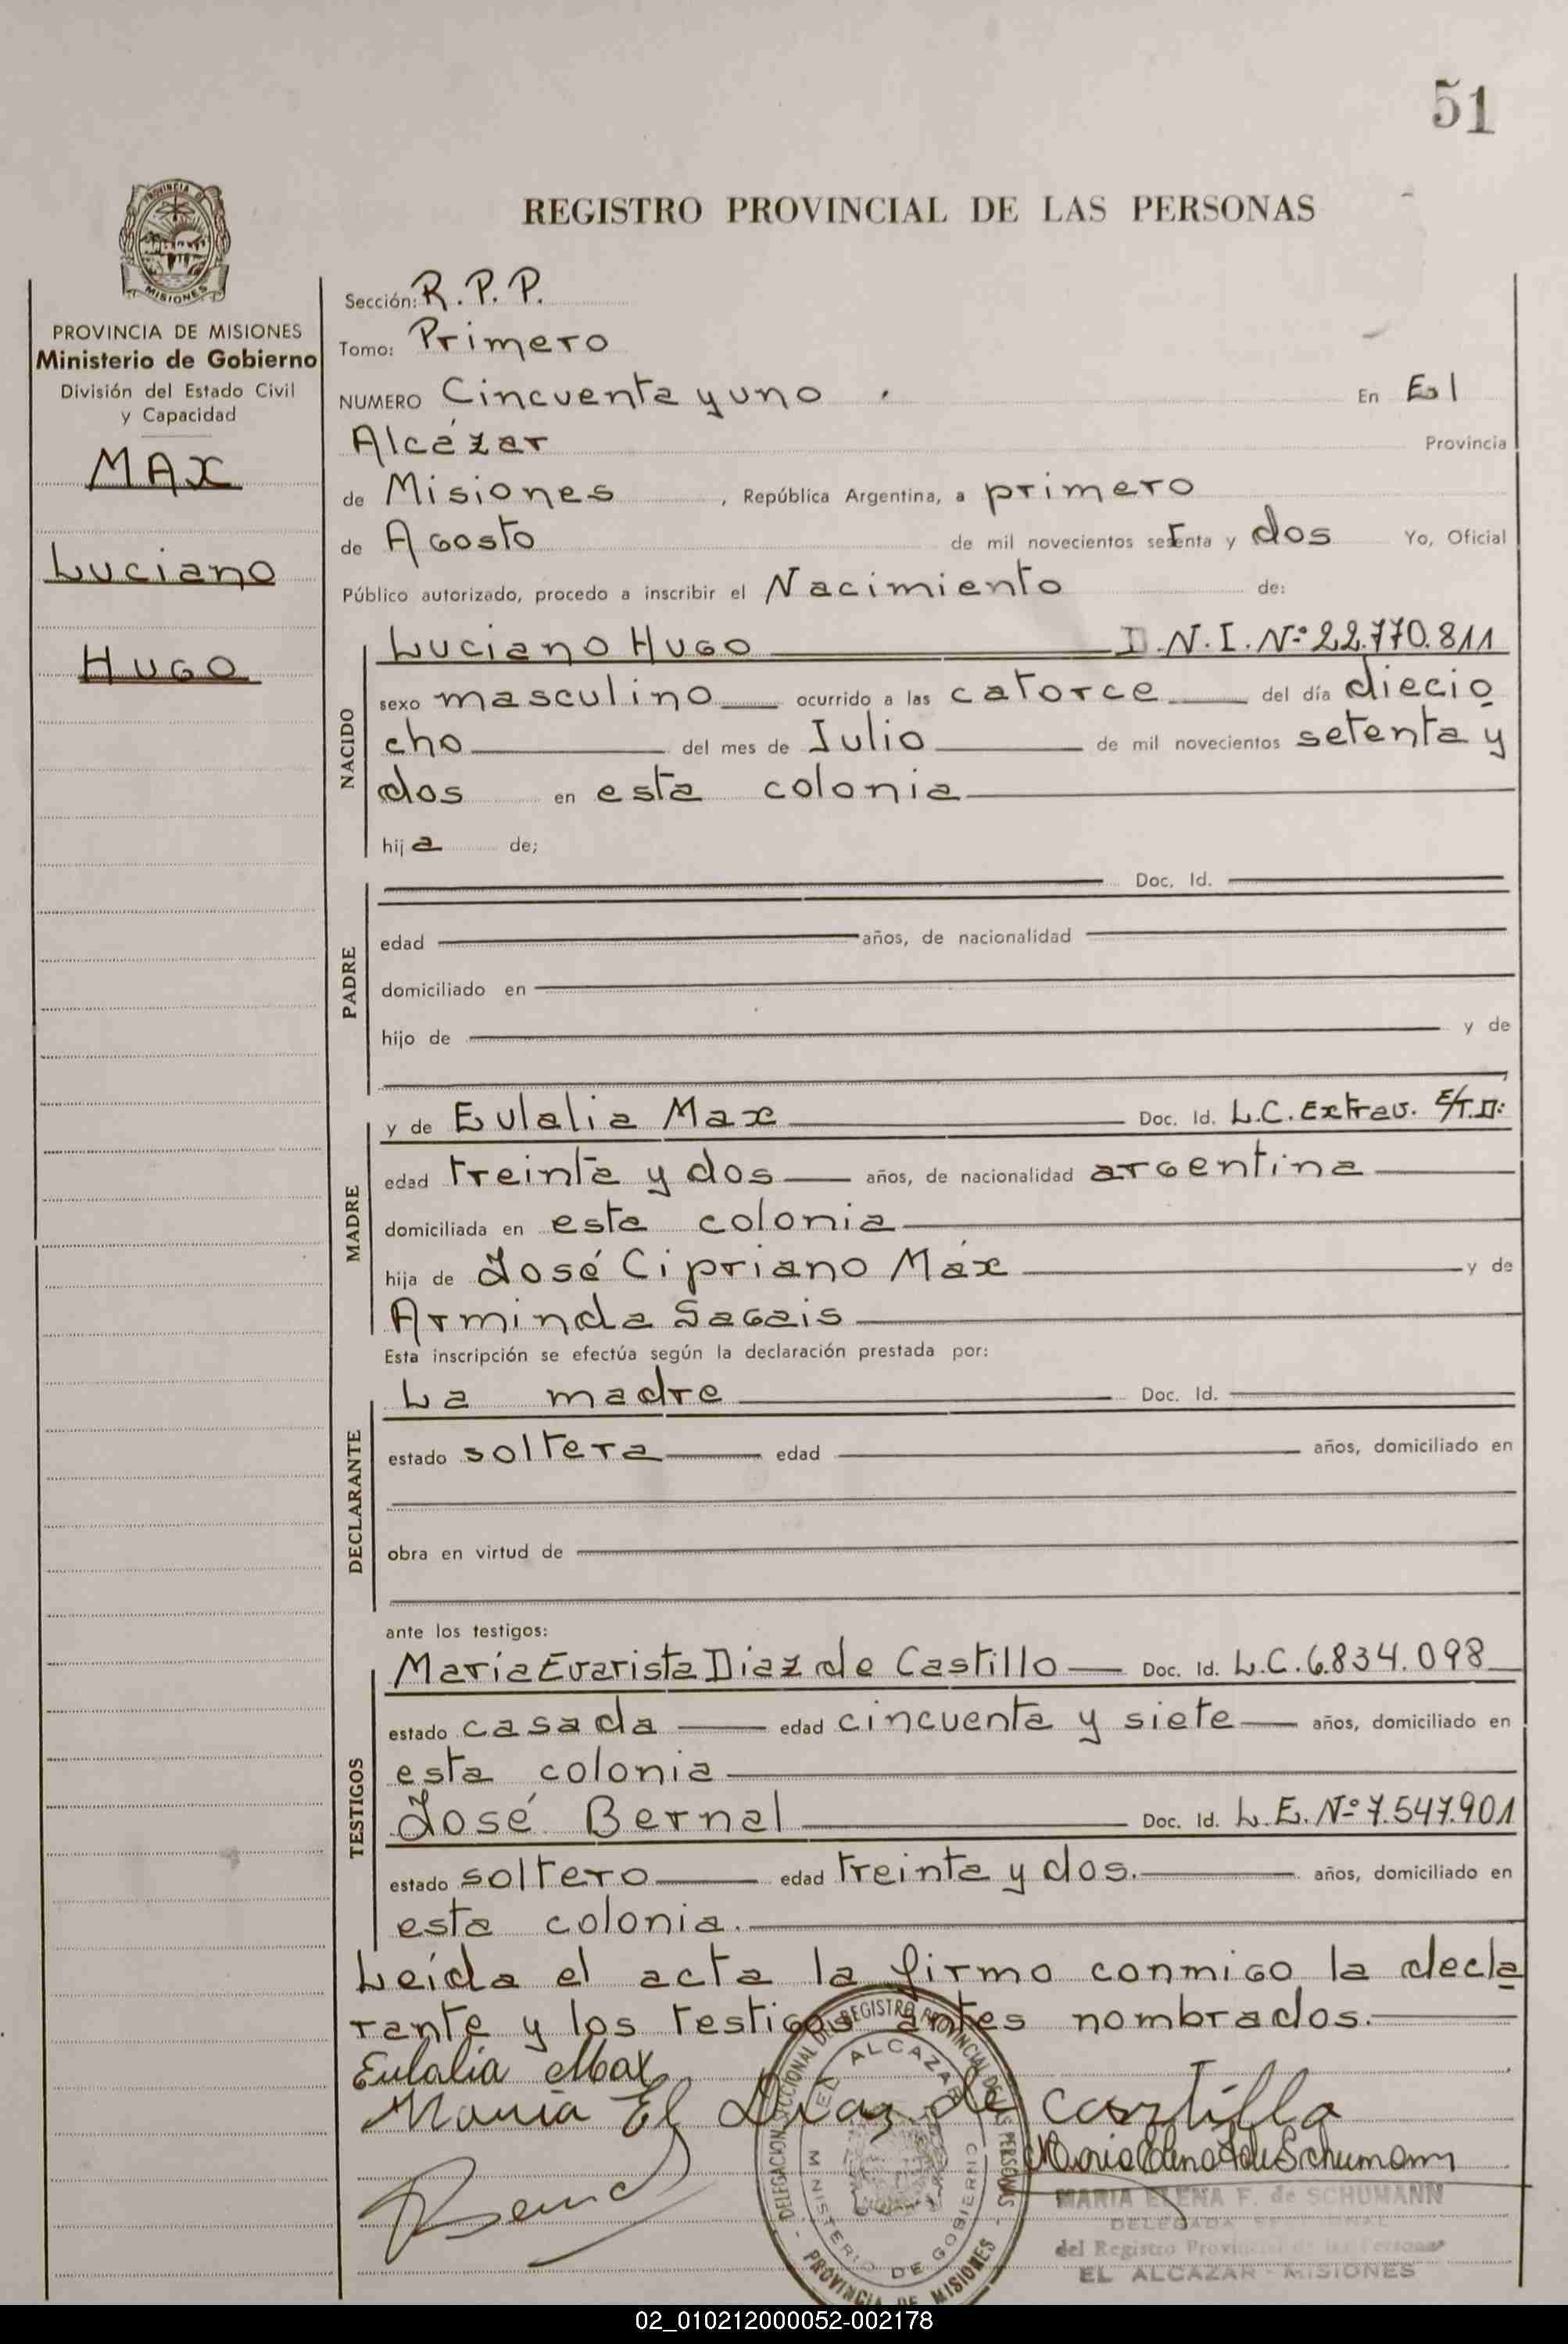 51
REGISTRO PROVINCIAL DE LAS PERSONAS
PROVINCIA DE MISIONES
Ministerio de Gobierno
División del Estado Civil
y Capacidad
MAX
Luciano
Hugo
Sección: R.P.P.
Tomo: Primero
NUMERO Cincuenta y uno . En El
Alcázar Provincia
de Misiones , República Argentina, a primero
de Agosto de mil novecientos setenta y dos Yo, Oficial
Público autorizado, procedo a inscribir el Nacimiento de:
NACIDO
Luciano Hugo D.N.I. Nº 22.770.811
sexo masculino ocurrido a las catorce del día diecio
cho del mes de Julio de mil novecientos setenta y
dos en esta colonia
hija de;
PADRE
Doc. Id.
edad años, de nacionalidad
domiciliado en
hijo de y de
MADRE
y de Eulalia Max Doc. Id. L.C. Extrav. E/T.D:
edad treinta y dos años, de nacionalidad argentina
domiciliada en esta colonia
hija de José Cipriano Máx y de
Arminda Sagais
Esta inscripción se efectúa según la declaración prestada por:
DECLARANTE
La madre Doc. Id.
estado soltera edad años, domiciliado en
obra en virtud de
ante los testigos:
TESTIGOS
María Evarista Diaz de Castillo Doc. Id. L.C. 6.834.098
estado casada edad cincuenta y siete años, domiciliado en
esta colonia
José Bernal Doc. Id. L.E. Nº 7.547.901
estado soltero edad treinta y dos. años, domiciliado en
esta colonia.
Leída el acta la firmo conmigo la decla
rante y los testigos antes nombrados.
Eulalia Max
Maria E Diaz de Castillo
DELEGACION SECCIONAL DEL REGISTRO PROVINCIAL DE LAS PERSONAS
EL ALCAZAR
MINISTERIO DE GOBIERNO
- PROVINCIA DE MISIONES -
MARIA ELENA F. de SCHUMANN
DELEGADA SECCIONAL
del Registro Provincial de las Personas
EL ALCAZAR - MISIONES
02_010212000052-002178